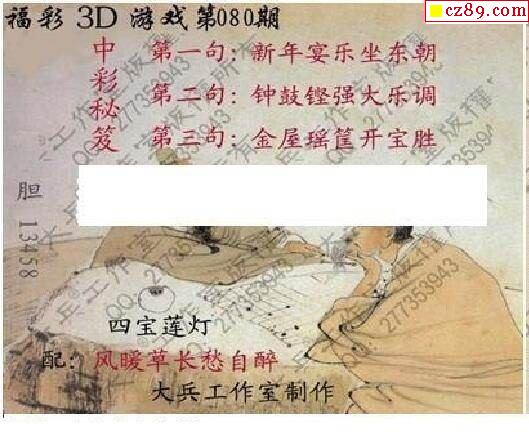 福彩 3D 游戏第080期
cz89.com
中彩秘笈
第一句：新年宴乐坐东朝
第二句：钟鼓铿强大乐调
第三句：金屋瑶筐开宝胜
胆 13458
四宝莲灯
配：风暖草长愁自醉
大兵工作室制作
大兵工作室版權所有
QQ:277353943